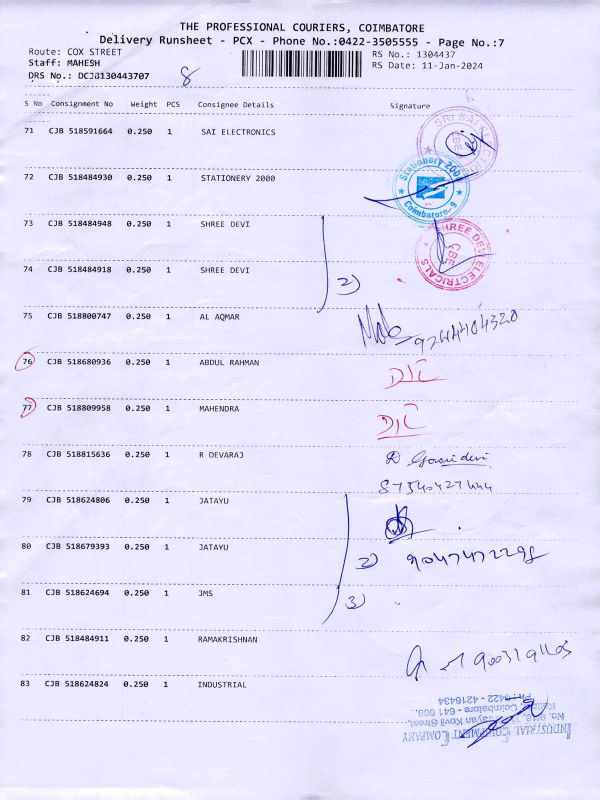 THE PROFESSIONAL COURIERS, COIMBATORE
Delivery Runsheet - PCX - Phone No.:0422-3505555 - Page No.:7
Route: COX STREET
RS No.: 1304437
Staff: MAHESH
RS Date: 11-Jan-2024
DRS No.: DCJB130443707 8
S No Consignment No Weight PCS Consignee Details Signature
71 CJB 518591664 0.250 1 SAI ELECTRONICS
SRI SAI CBE
72 CJB 518484930 0.250 1 STATIONERY 2000
Stationery 2000 Coimbatore-9
73 CJB 518484948 0.250 1 SHREE DEVI
SHREE DEVI ELECTRICALS CBE
74 CJB 518484918 0.250 1 SHREE DEVI
2)
75 CJB 518800747 0.250 1 AL AQMAR
76 CJB 518680936 0.250 1 ABDUL RAHMAN
77 CJB 518809958 0.250 1 MAHENDRA
78 CJB 518815636 0.250 1 R DEVARAJ
79 CJB 518624806 0.250 1 JATAYU
80 CJB 518679393 0.250 1 JATAYU
2) 9047472298
81 CJB 518624694 0.250 1 JMS
3)
82 CJB 518484911 0.250 1 RAMAKRISHNAN
83 CJB 518624824 0.250 1 INDUSTRIAL
INDUSTRIAL EQUIPMENT COMPANY
Kovil Street,
Coimbatore - 641 009.
Ph : 0422 - 4216434